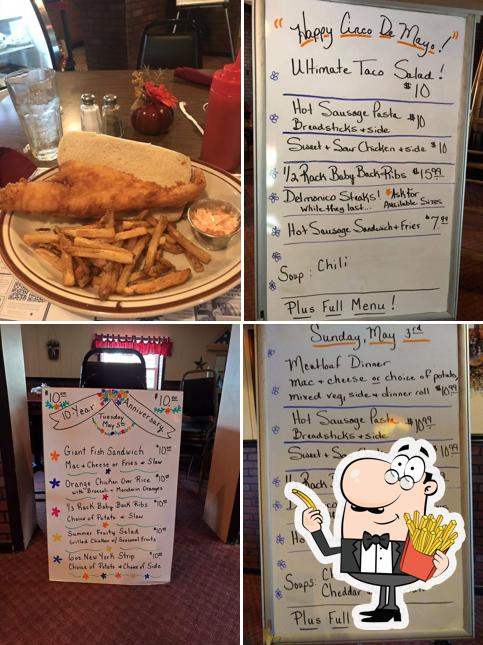 "Happy Cinco De Mayo!"
Ultimate Taco Salad!
$10
Hot Sausage Pasta $10
Breadsticks + side
Sweet + Sour Chicken + side $10
1/2 Rack Baby Back Ribs $15.99
Delmonico Steaks! *Ask For
while they last... Available Sizes
Hot Sausage Sandwich + Fries $7.99
Soup: Chili
Plus Full Menu!
$10.00 $10.00
10-Year Anniversary
Tuesday
May
Giant Fish Sandwich $10.00
Mac + Cheese or Fries + Slaw
Orange Chicken Over Rice $10.00
with Broccoli + Mandarin Oranges
1/3 Rack Baby Back Ribs $10.00
Choice of Potato + Slaw
Summer Fruity Salad $10.00
Grilled Chicken w/ Seasonal Fruits
6oz New York Strip $10.00
Choice of Potato + Choice of Side
Sunday, May 3rd
Meatloaf Dinner
mac + cheese or choice of potato,
mixed veg, side + dinner roll $10.99
Hot Sausage Pasta $10.99
Breadsticks + side
Sweet + 10.99
Rack
Soups:
Cheddar
Plus Full